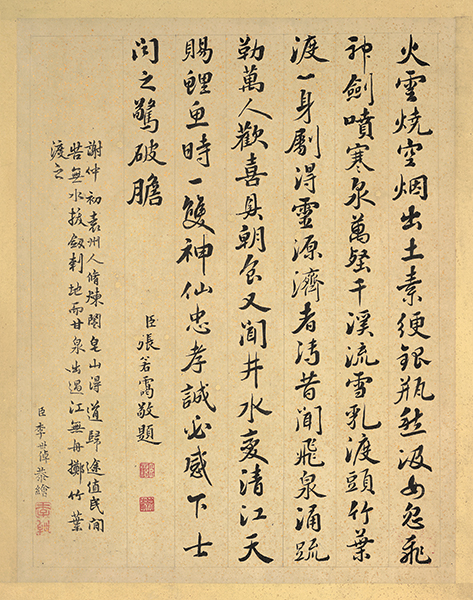 火雲燒空烟出土素綆銀瓶愁汲女忽飛
神劍噴寒泉萬壑千溪流雪乳渡頭竹葉
渡一身劚得靈源濟者溥昔聞飛泉涌疏
勒萬人歡喜具朝食又聞井水變清江天
賜鯉魚時一雙神仙忠孝誠必感下士
聞之驚破膽
臣張若靄敬題
謝仲初袁州人脩煉閤皂山得道歸途值民間
苦無水拔劍刺地而甘泉出遇江無舟擲竹葉
渡之
臣李世倬恭繪